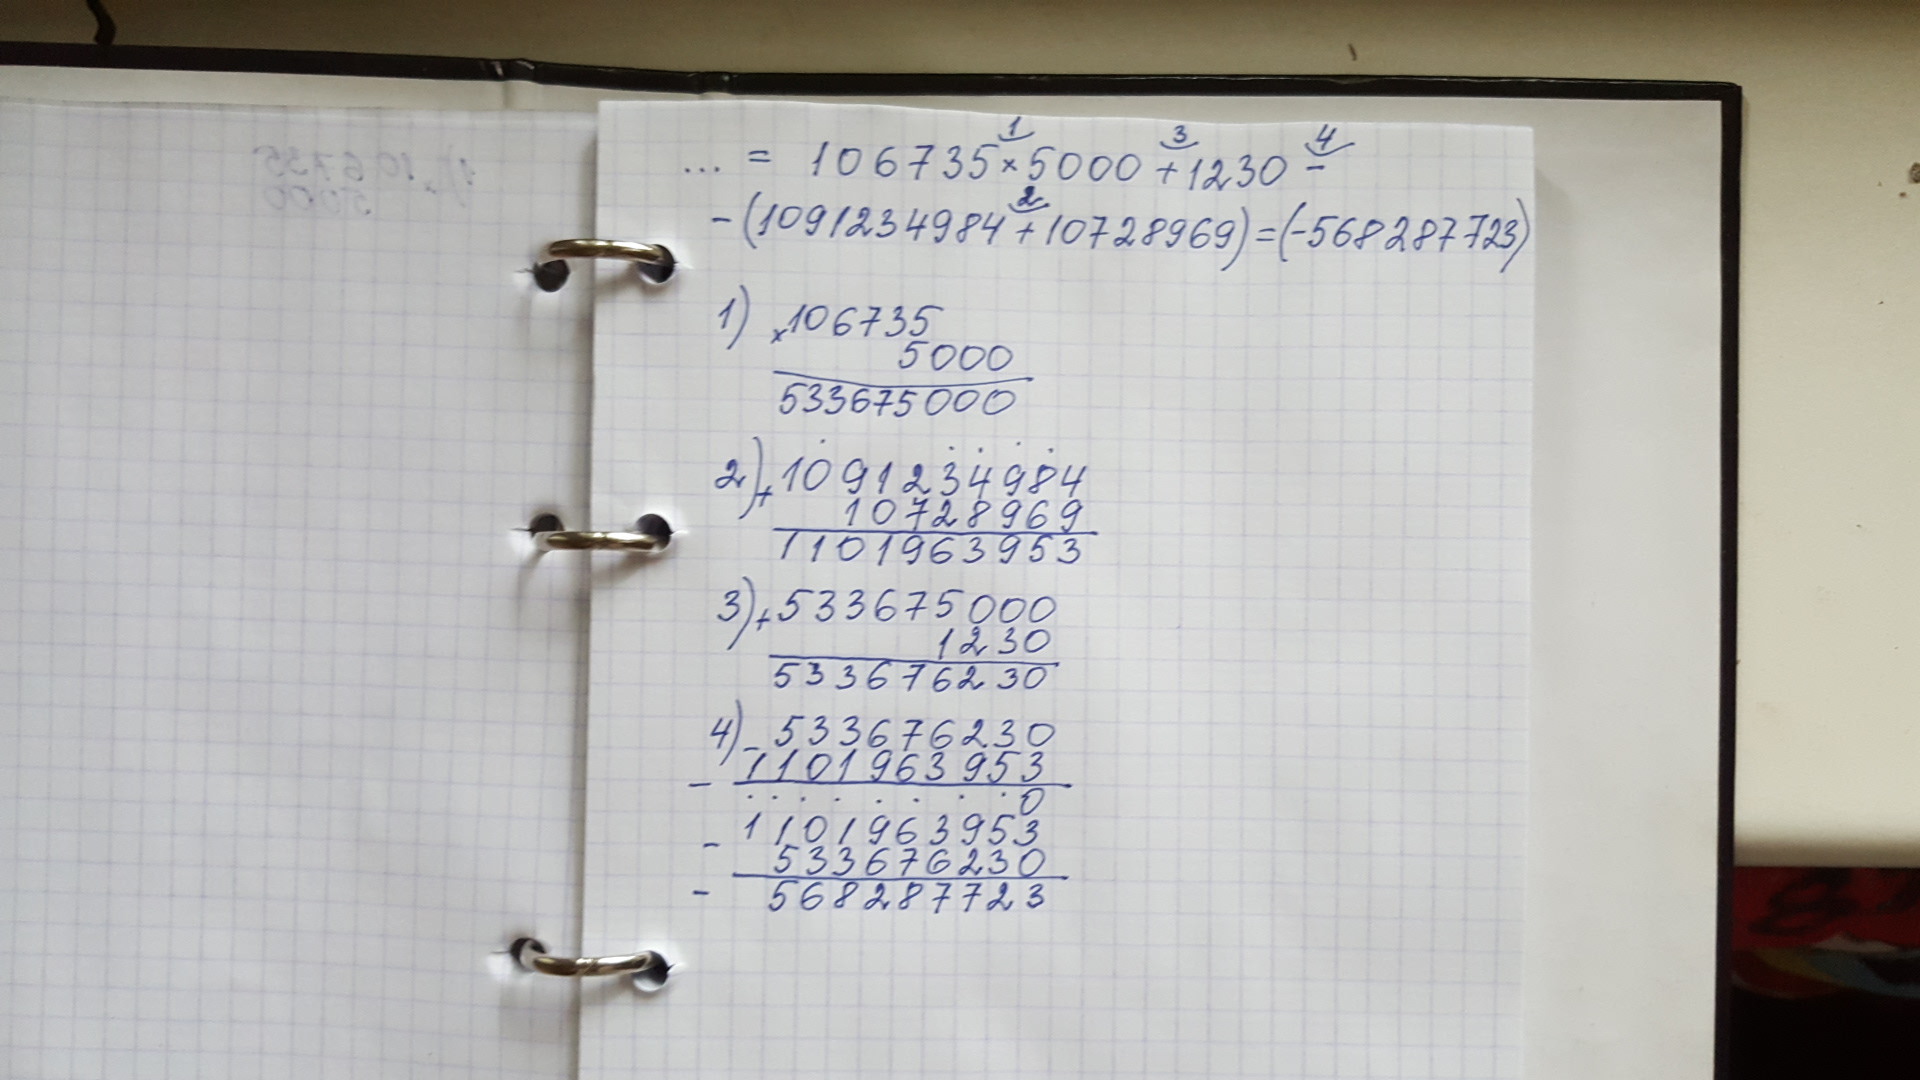 ... = 106735 × 5000 + 1230 -
- (1091234984 + 10728969) = (-568287723)
1) × 106735
5000
533675000
2) + 1091234984
10728969
1101963953
3) + 533675000
1230
533676230
4) - 533676230
1101963953
-
0
- 1101963953
533676230
- 568287723